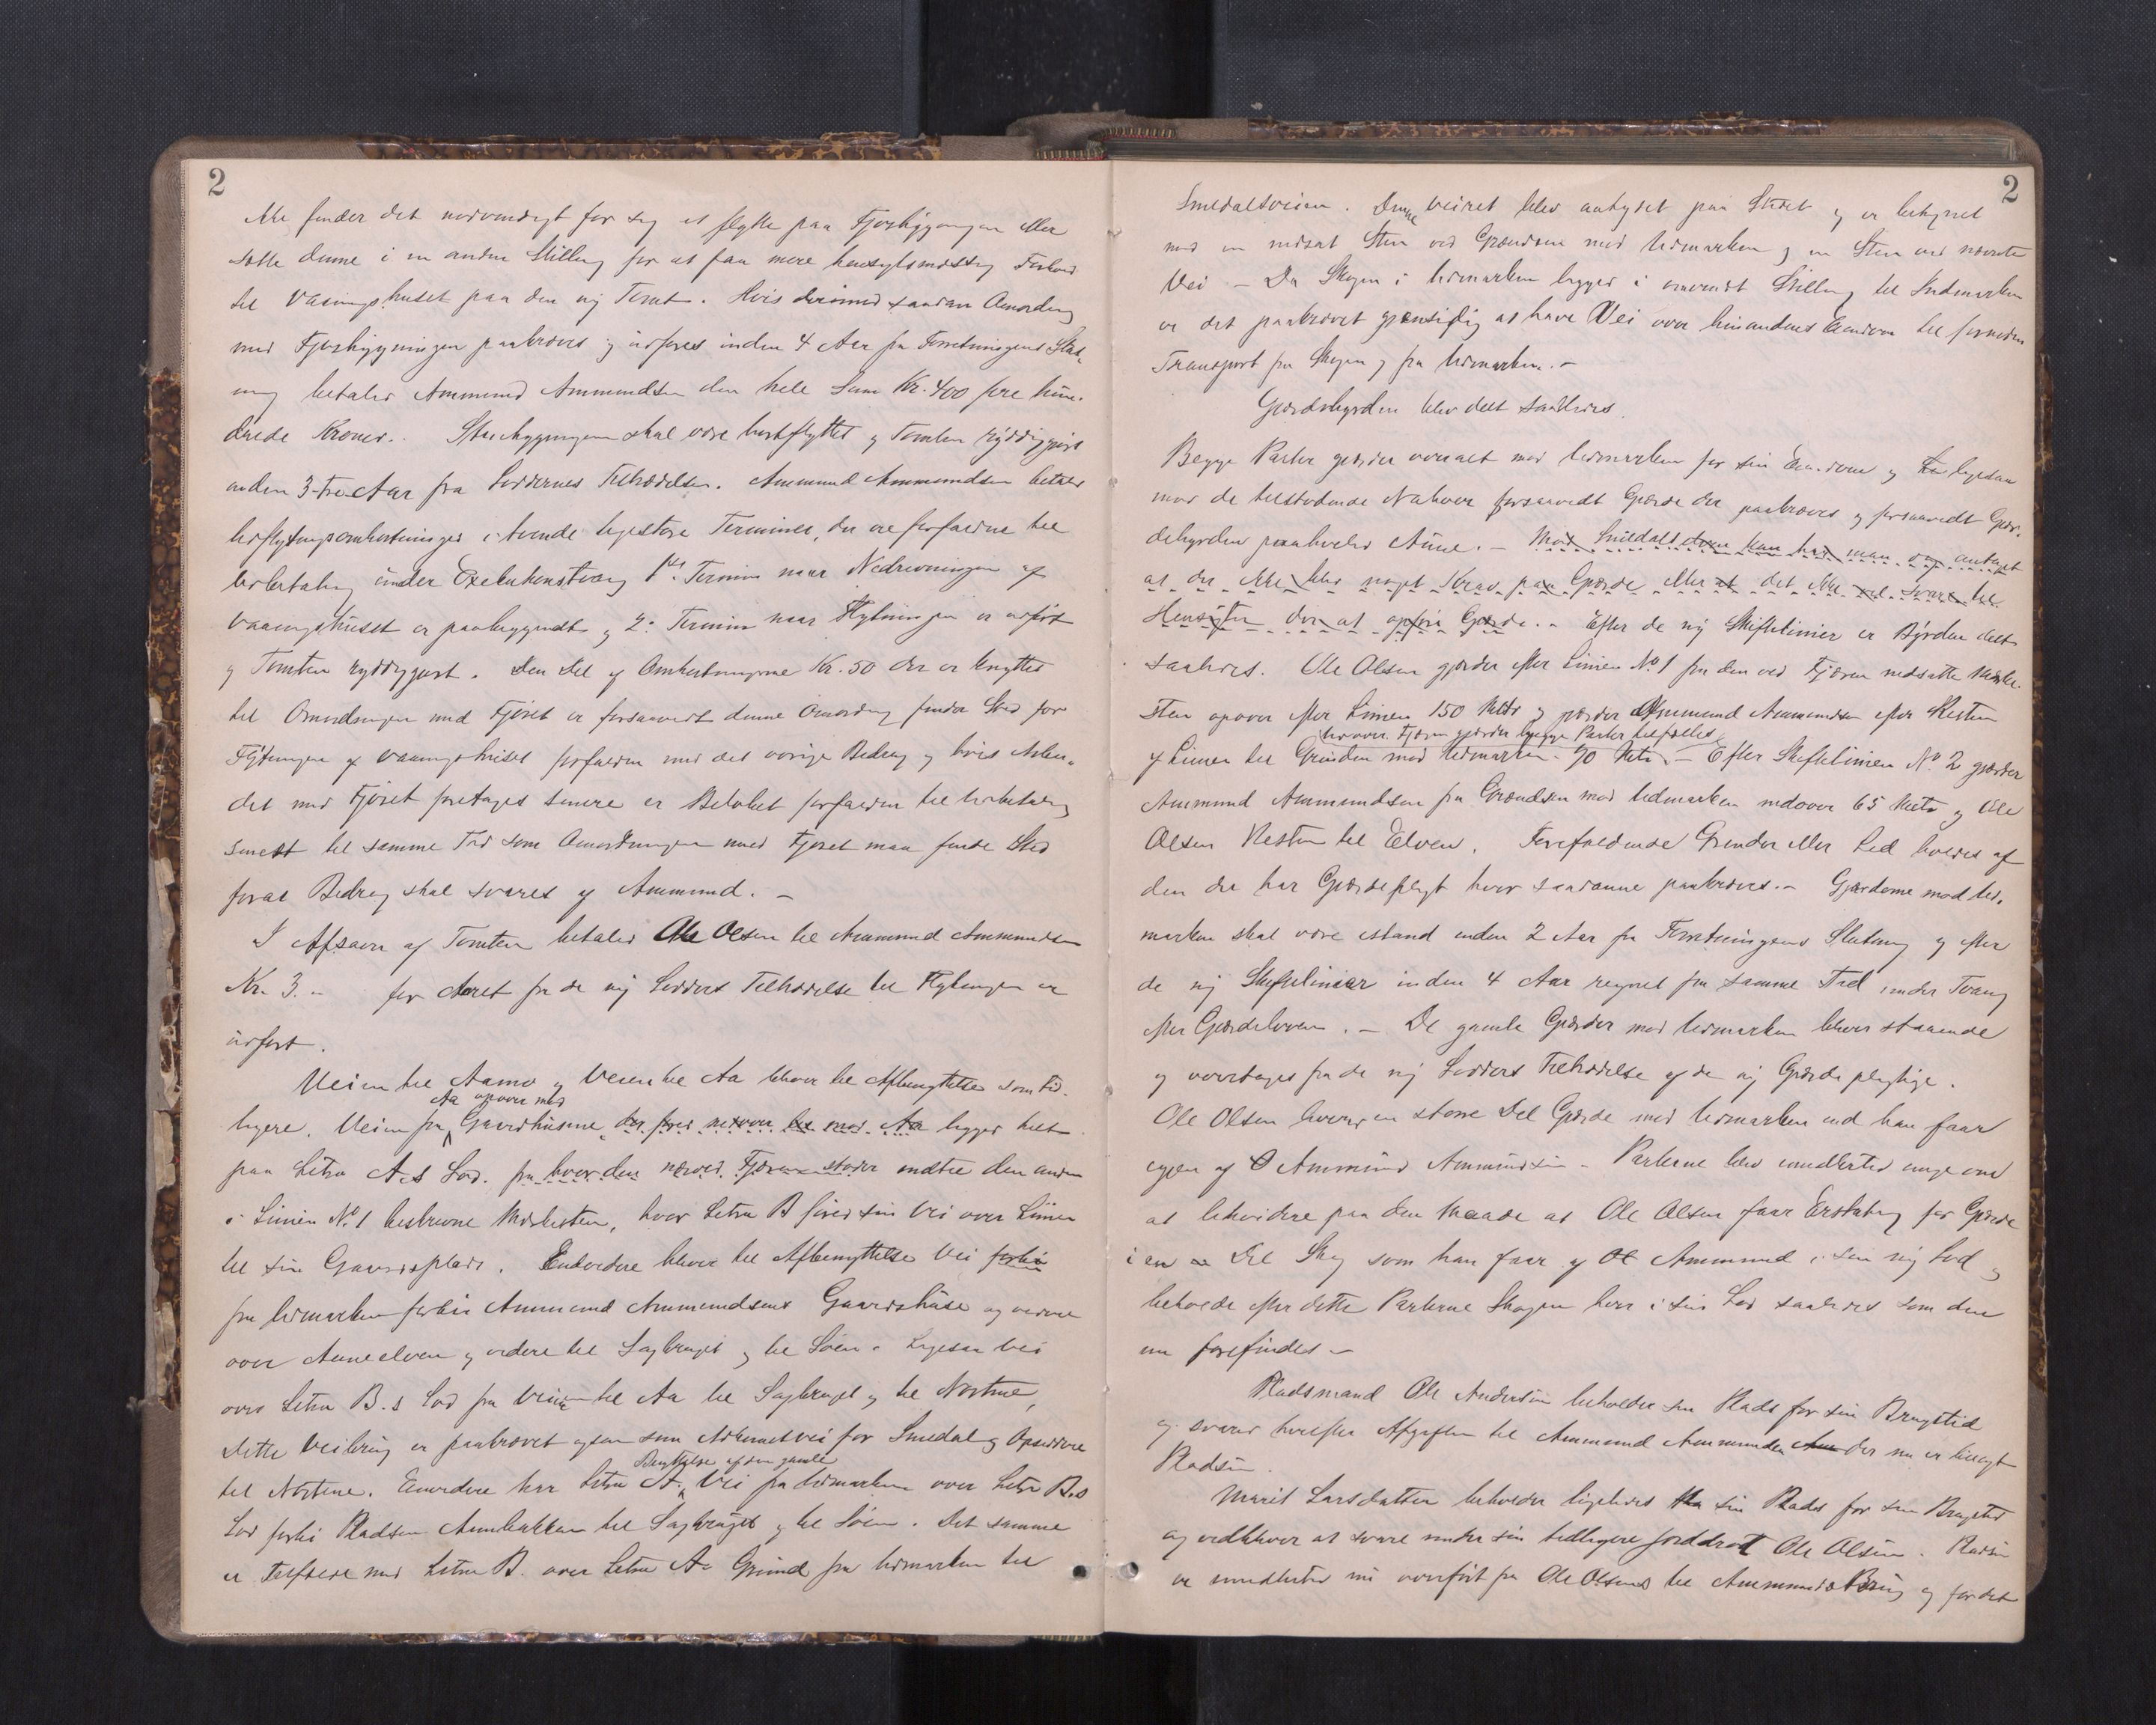 2
Ole finder det nødvendigt for sig at flytte paa Fjøsbygningen eller
stille denne i en anden Stilling for at faa mere hensigtsmæssig Forhold
til Vaaningshuset paa den ny Tomt. Hvis derimod saadan Omordning
med Fjøsbygningen paakræves og udføres inden 4 Aar fra Forretningens Slut-
ning betaler Ammund Ammundsen den hele Sum Kr. 400 fire hun-
drede Kroner. Stuebygningen skal være bortflyttet og Tomten ryddiggjort
inden 3-tre Aar fra Loddernes Tiltrædelse. Ammund Ammundsen betaler
Udflytningsomkostninger i tvende ligestore Terminer, der ere forfaldne til
Udbetaling under Exekutionstvang 1ste Termin naar Nedrivningen af
Vaaningshuset er paabegyndt og 2. Termin naar Flytningen er udført
og Tomten ryddiggjort. Den Del af Omkostningerne Kr. 50 der er knyttet
til Omordningen med Fjøset er forsaavidt denne Omordning finder Sted før
Flytningen af Vaaningshuset forfalden med det øvrige Bidrag og hvis Arbei-
det med Fjøset foretages senere er Beløbet forfalden til Udbetaling
senest til samme Tid som Omordningen med Fjøset maa finde Sted
forat Bidrag skal svares af Ammund. -
I Afsavn af Tomten betaler Ole Olsen til Ammund Ammundsen
Kr. 3.- for Aaret fra de ny Lodders Tiltrædelse til Flytningen er
udført.
Veien til Aamo og Veien til Aa bliver til Afbenyttelse som tid-
Aa opover med
ligere. Veien fra Gaardhusene der fører nedover til mod Aa ligger helt
paa Litra A.s Lod. fra hvor den nærved Fjæren støder indtil den anden
i Linien No. 1 beskrevne Mærkesten, hvor Litra B fører sin Vei over Linien
til sin Gaardsplads. Endvidere bliver til Afbenyttelse Vei forbi
fra Udmarken forbi Ammund Ammundsens Gaardshuse og videre
over Aumeelven og videre til Sagbruget og til Søen. Ligesaa Vei
over Litra B.s Lod fra Veien til Aa til Sagbruget og til Nostene,
Dette Veibrug er paakrævet ogsaa som Adkomstvei for Smedal og Opsiddere
Benyttelse af den gamle
til Nostene. Endvidere har Litra A. Vei fra Udmarken over Litra B.s
Lod forbi Pladsen Aunebakken til Sagbruget og til Søen. Det samme
er Tilfælde med Litra B. over Litra A. Grund fra Udmarken til
2
Smedalsveien. Denne Veiret blev antydet paa Stedet og er betegnet
med en nedsat Sten ved Grændsen mod Udmarken og en Sten ved nævnte
Vei - Da Skogen i Udmarken ligger i omvendt Stilling til Indmarken
er det paakrævet gjensidig at have Vei over hinandens Eiendom til fornøden
Transport fra Skogen og fra Udmarken. -
Gjærdebyrden blev delt saaledes.
Begge Parter gjærder overalt mod Udmarken for sin Eiendom og ligesaa
mod de tilstødende Naboer forsaavidt Gjærde der paakræves og forsaavidt Gjær-
debyrden paahviler Aune. - Mod Smedalselven kan har man og antaget
at der ikke blev noget Krav paa Gjærde eller at det ikke vil svare til
Hensigten der at opføre Gjærde. - Efter de ny Skiftelinier er Byrden delt
saaledes. Ole Olsen gjærder efter Linien No. 1 fra den ved Fjæren nedsatte Mærke-
sten opover efter Linien 150 Meter og gjærder Ammund Ammundsen efter Resten
udover Fjæren gjærder begge Parter tilfælles
af Linien til Grinden mod Udmarken 90 Meter. - Efter Skiftelinien No. 2 gjærder
Ammund Ammundsen fra Grændsen mod Udmarken nedover 65 Meter og Ole
Olsen Resten til Elven. Forefaldende Grinder eller Led holdes af
den der har Gjærdepligt hvor saadanne paakræves. - Gjærderne mod Ud-
marken skal være istand inden 2 Aar fra Forretningens Slutning og efter
de ny Skiftelinier inden 4 Aar regnet fra samme Tid under Tvang
efter Gjærdeloven. - De gamle Gjærder mod Udmarken bliver staaende
og overtages fra de ny Lodders Tiltrædelse af de ny Gjærdepligtige.
Ole Olsen en større Del Gjærde mod Udmarken end han faar
igjen af Ammund Ammundsen - Parterne blev imidlertid enige om
at likvidere paa den Maade at Ole Olsen faar Erstatning for Gjærde
i en Del Skog som han faar af Ammund i sin ny Lod og
beholde efter dette Parterne Skogen hver i sin Lod saaledes som den
nu forefindes -
Pladsmand Ole Andersen beholder sin Plads for sin Brugstid
og svarer herefter Afgiften til Ammund Ammundsen der nu er tillagt
Pladsen.
Marit Larsdatter beholder ligeledes sin Plads for sin Brugstid
og vedbliver at svare under sin tidligere Jorddrot Ole Olsen. Pladsen
er imidlertid nu overført fra Ole Olsens til Ammunds Brug og for det